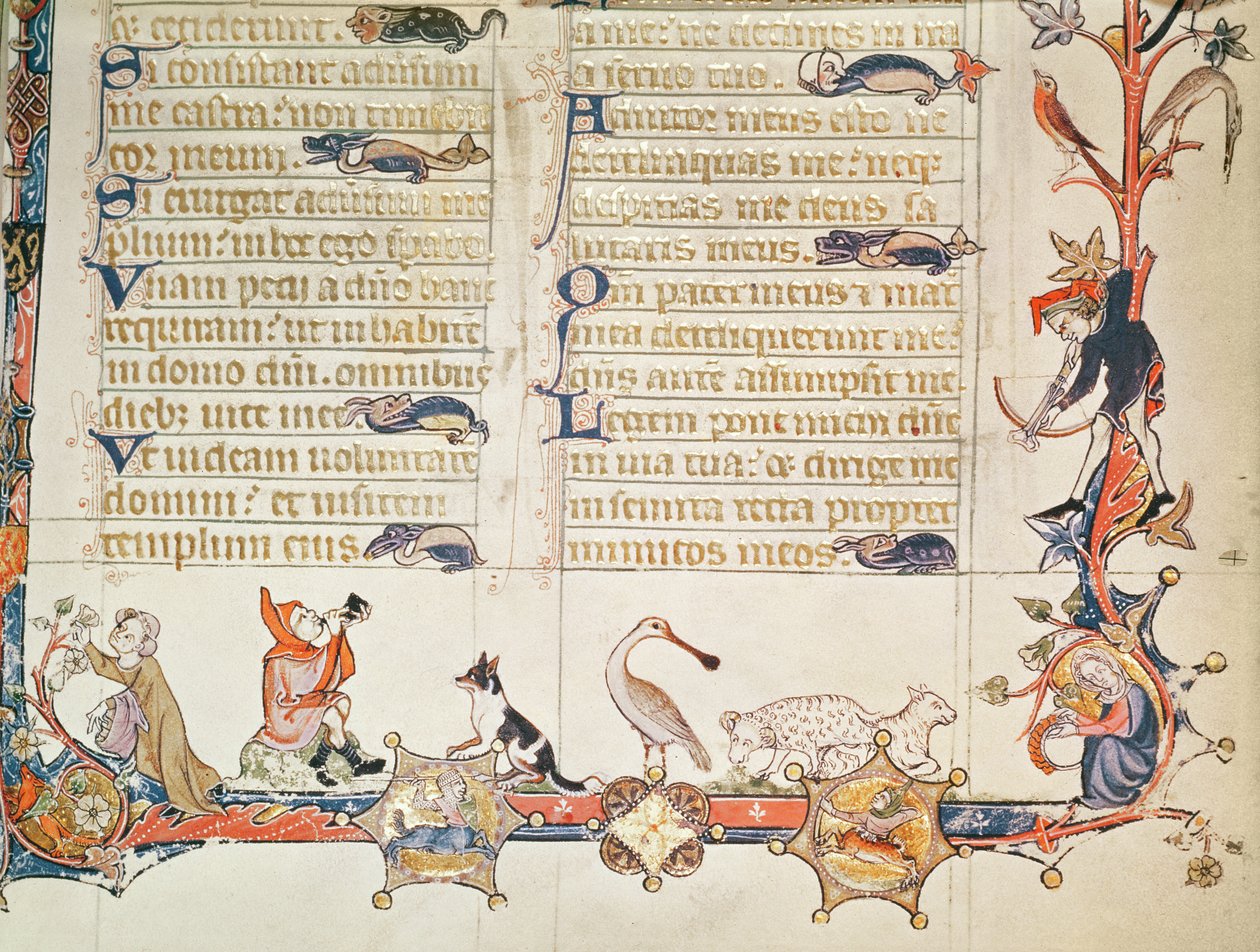 & ceciderunt.
Si consistant adūsum
me castra: non timebit
cor meum.
Si exurgat adūsum me
p̄lium: in hoc ego sp̄abo.
Vnam pecij a dn̄o hanc
requiram: ut inhabitē
in domo dn̄i. omnibus
dieb; uite mee.
Vt uideam uoluntatē
domini: et uisitem
templum eius
a me: ne declines in ira
a seruo tuo.
Adiutor meus esto ne
derelinquas me: neq;
despicias me deus sa
lutaris meus.
Qm̄ pater meus ⁊ mat̄
mea dereliquerunt me:
dn̄s autē assumpsit me.
Legem pone michi dn̄e
in uia tua: & dirige me
in semita recta propter
inimicos meos.